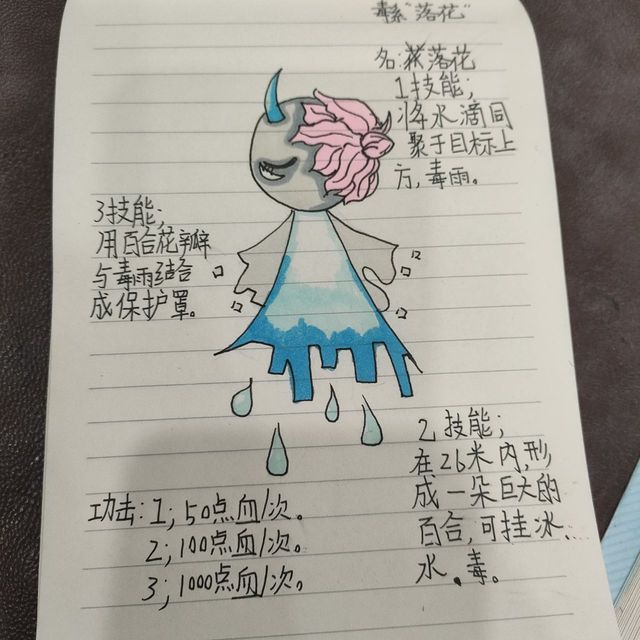 毒系“落花”
名:萩落花
1技能;
将水滴同
聚于目标上
方,毒雨。
3技能;
用百合花瓣
与毒雨结合
成保护罩。
2技能;
在26米内,形
成一朵巨大的
百合,可挂冰...
水。毒。
功击:1;50点血/次。
2;100点血/次。
3;1000点血/次。